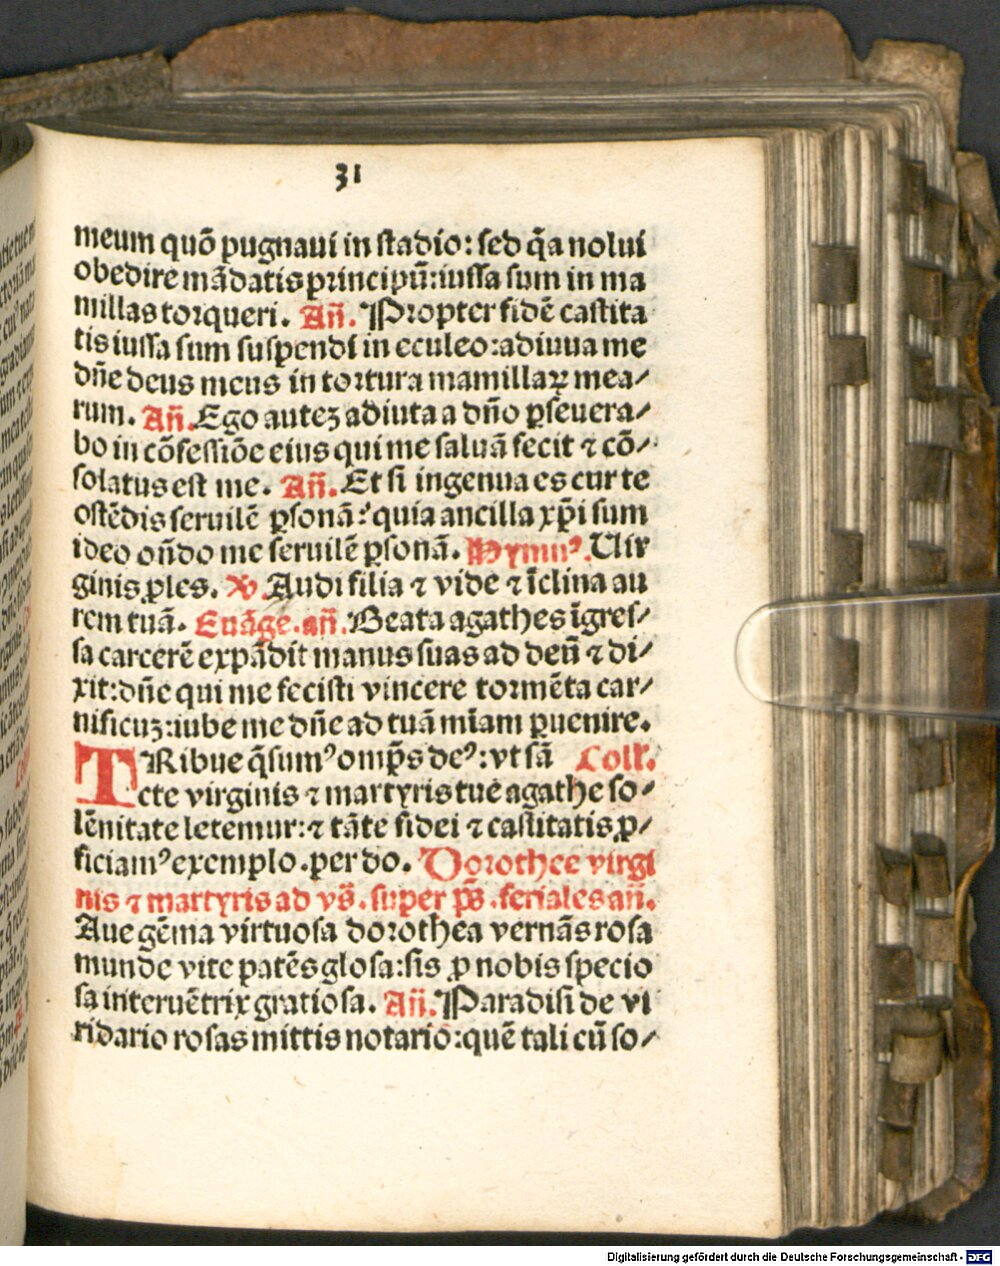 31
meum quō pugnaui in ſtadio: ſed q̄a nolui
obedire mādatis principū: iuſſa ſum in ma
millas torqueri. Añ. Propter fidē caſtita
tis iuſſa ſum ſuſpendi in eculeo: adiuua me
dñe deus meus in tortura mamillaꝝ mea/
rum. Añ. Ego auteꝫ adiuta a dño ꝑſeuera/
bo in cōfeſſiōe eius qui me ſaluā fecit ⁊ cō/
ſolatus eſt me. Añ. Et ſi ingenua es cur te
oſtēdis ſeruilē ꝑſonā: quia ancilla xp̄i ſum
ideo oñdo me ſeruilē ꝑſonā. Hymnꝰ. Uir
ginis ꝓles. ℣ Audi filia ⁊ vide ⁊ īclina au
rem tuā. Euāge. añ. Beata agathes īgreſ/
ſa carcerē expādit manus ſuas ad deū ⁊ di/
xit: dñe qui me feciſti vincere tormēta car/
nificuꝫ: iube me dñe ad tuā mīam ꝑuenire.
TRibue q̄ſumꝰ omp̄s deꝰ: vt ſā Coll'.
cte virginis ⁊ martyris tue agathe ſo/
lēnitate letemur: ⁊ tāte fidei ⁊ caſtitatis ꝓ/
ficiamꝰ exemplo. per do. Dorothee virgi
nis ⁊ martyris ad vs̄. ſuper ps̄. feriales añ.
Aue gēma virtuoſa dorothea vernās roſa
munde vite patēs gloſa: ſis ꝓ nobis ſpecio
ſa interuētrix gratioſa. Añ. Paradiſi de vi
ridario roſas mittis notario: quē tali cū ſo/
Digitalisierung gefördert durch die Deutsche Forschungsgemeinschaft - DFG